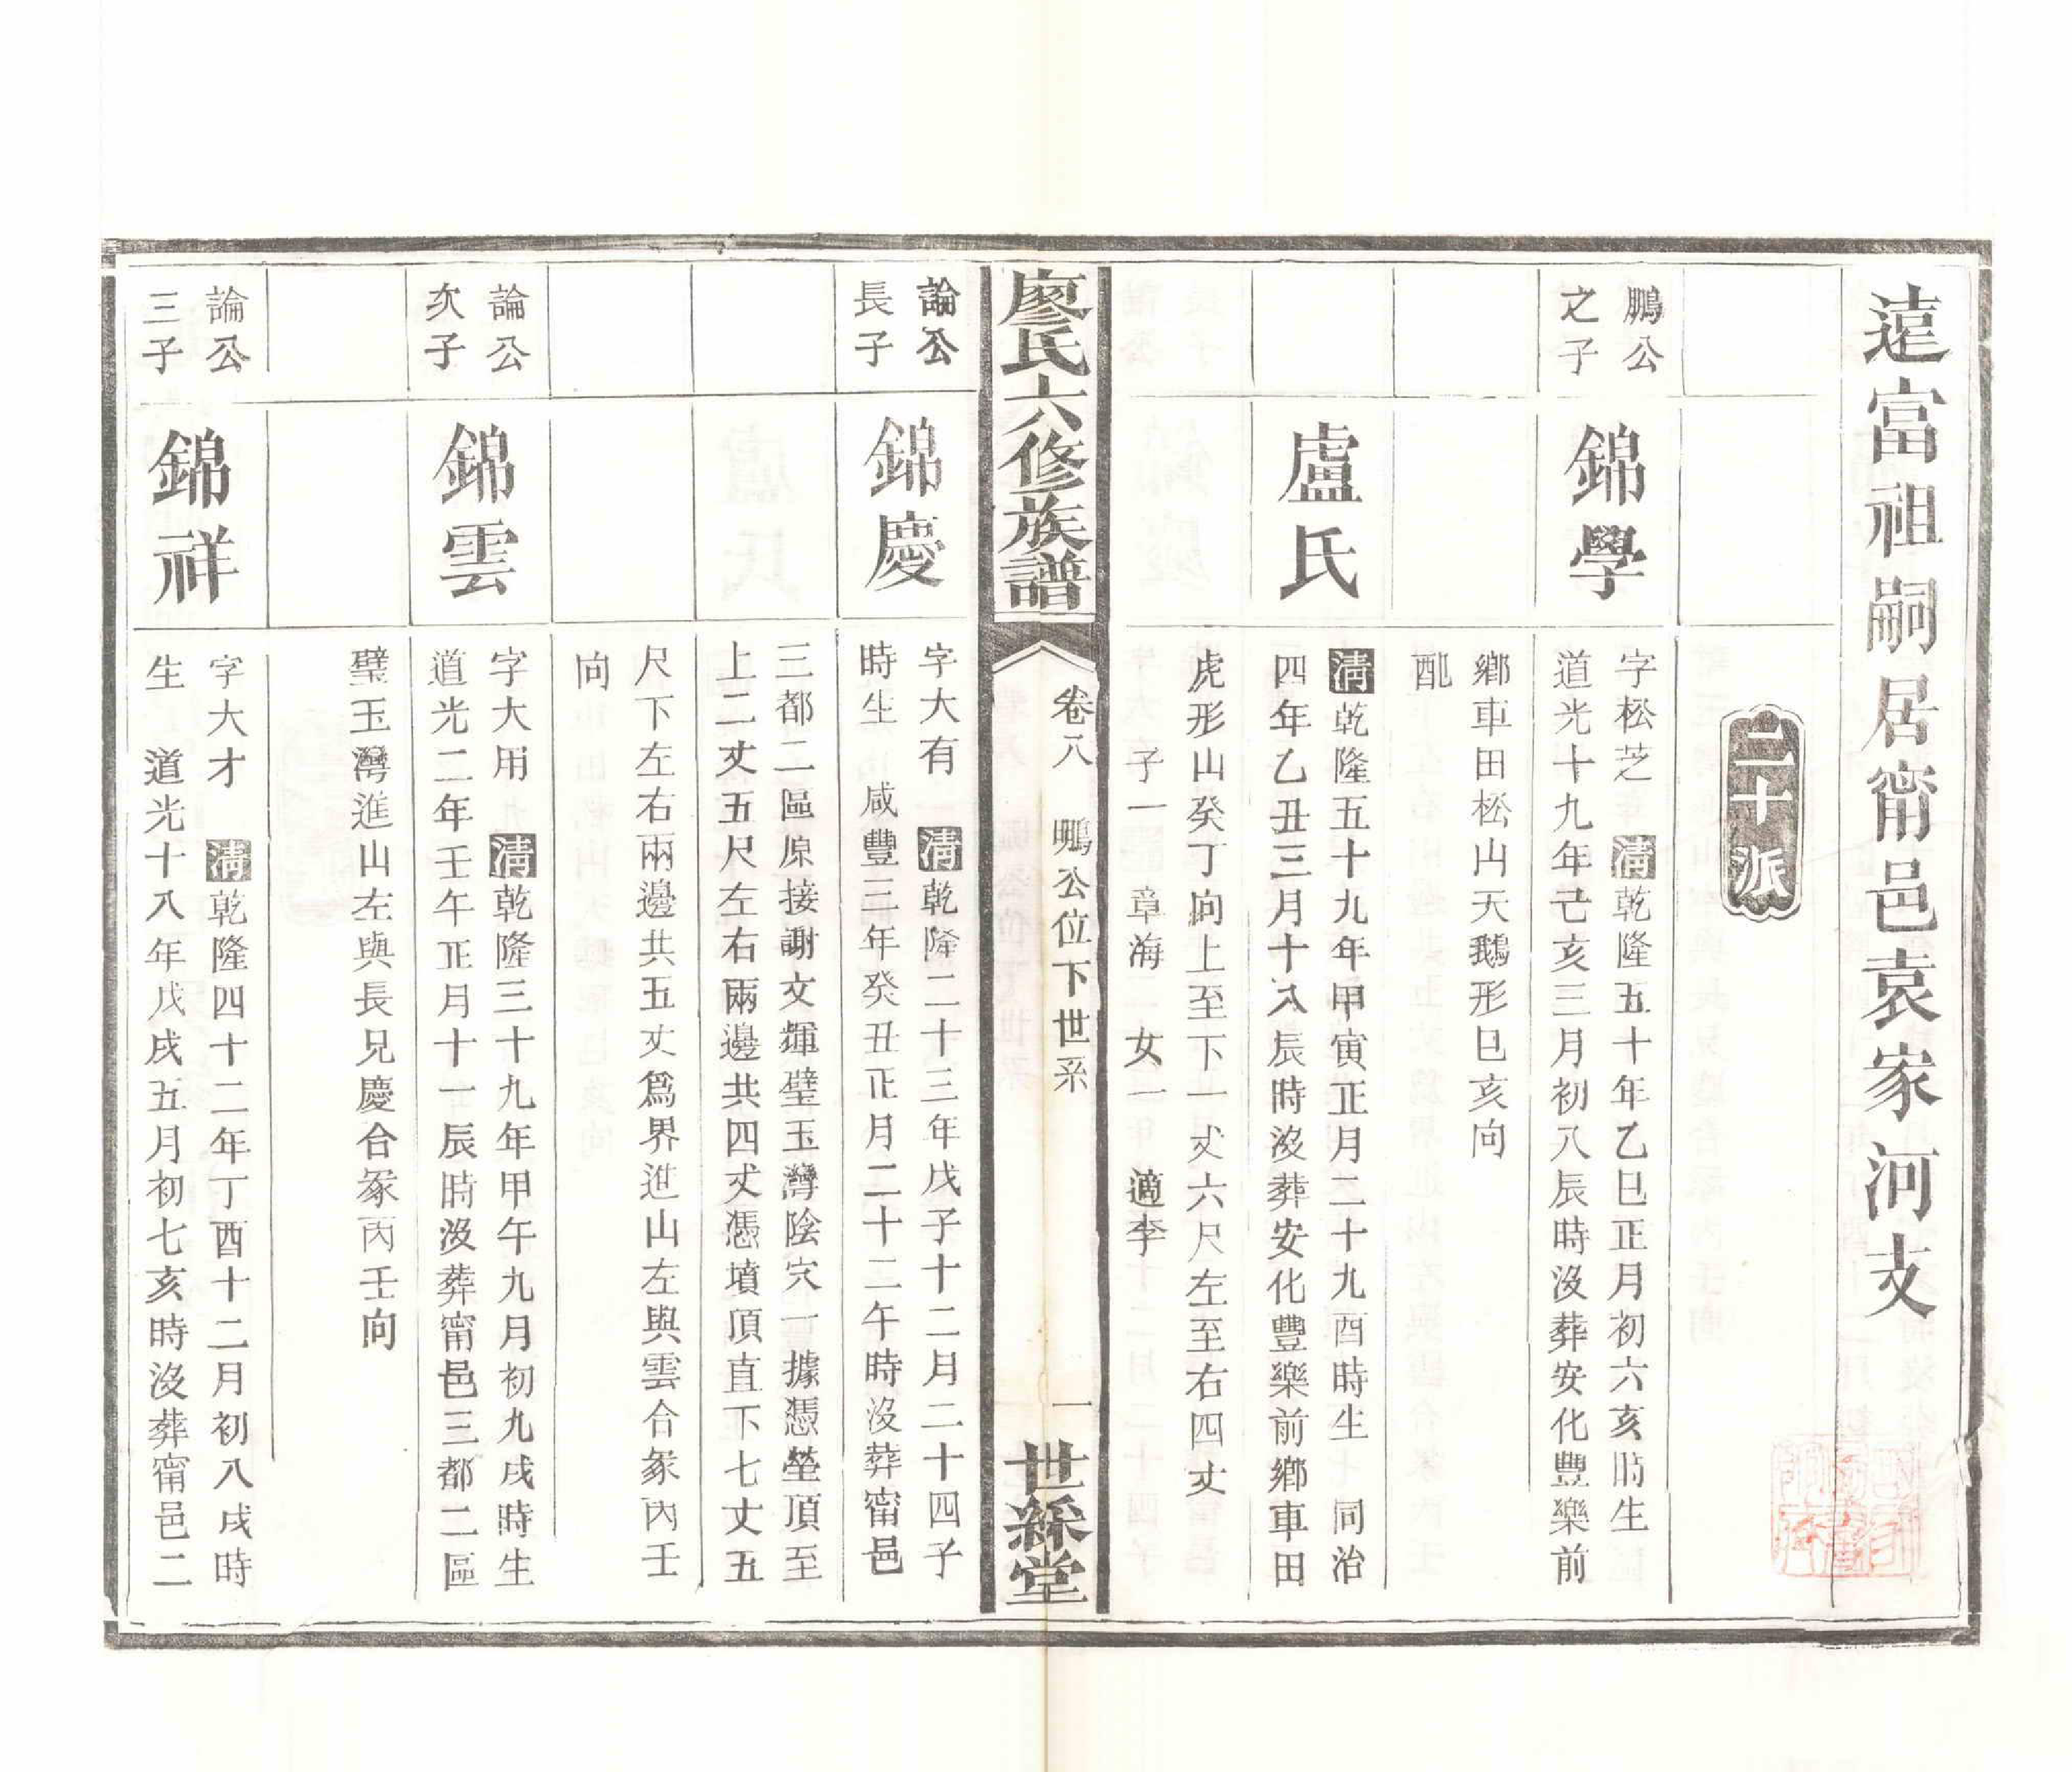 遠富祖嗣居甯邑袁家河支
二十派
鵬公
之子
錦學
字松芝 清乾隆五十年乙巳正月初六亥時生
道光十九年己亥三月初八辰時沒葬安化豐樂前
鄉車田松山天鵝形巳亥向
配
盧氏
清乾隆五十九年甲寅正月二十九酉時生 同治
四年乙丑三月十八辰時沒葬安化豐樂前鄉車田
虎形山癸丁向上至下一丈六尺左至右四丈
子一 章海 女一 適李
廖氏六修族譜
卷八 鵬公位下世系 一
世綵堂
論公
長子
錦慶
字大有 清乾隆二十三年戊子十二月二十四子
時生 咸豐三年癸丑正月二十二午時沒葬甯邑
三都二區原接謝文輝璧玉灣陰穴一據憑塋頂至
上二丈五尺左右兩邊共四丈憑墳頂直下七丈五
尺下左右兩邊共五丈爲界進山左與雲合冢丙壬
向
論公
次子
錦雲
字大用 清乾隆三十九年甲午九月初九戌時生
道光二年壬午正月十一辰時沒葬甯邑三都二區
璧玉灣進山左與長兄慶合冢丙壬向
論公
三子
錦祥
字大才 清乾隆四十二年丁酉十二月初八戌時
生 道光十八年戊戌五月初七亥時沒葬甯邑二